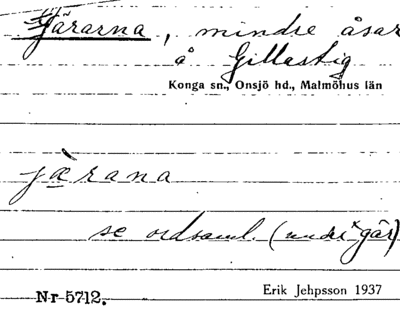 Gärarna, mindre åsar
å Gillastig
Konga sn., Onsjö hd., Malmöhus län
jærana
se ordsaml. (under gär)
Nr 5712.
Erik Jehpsson 1937